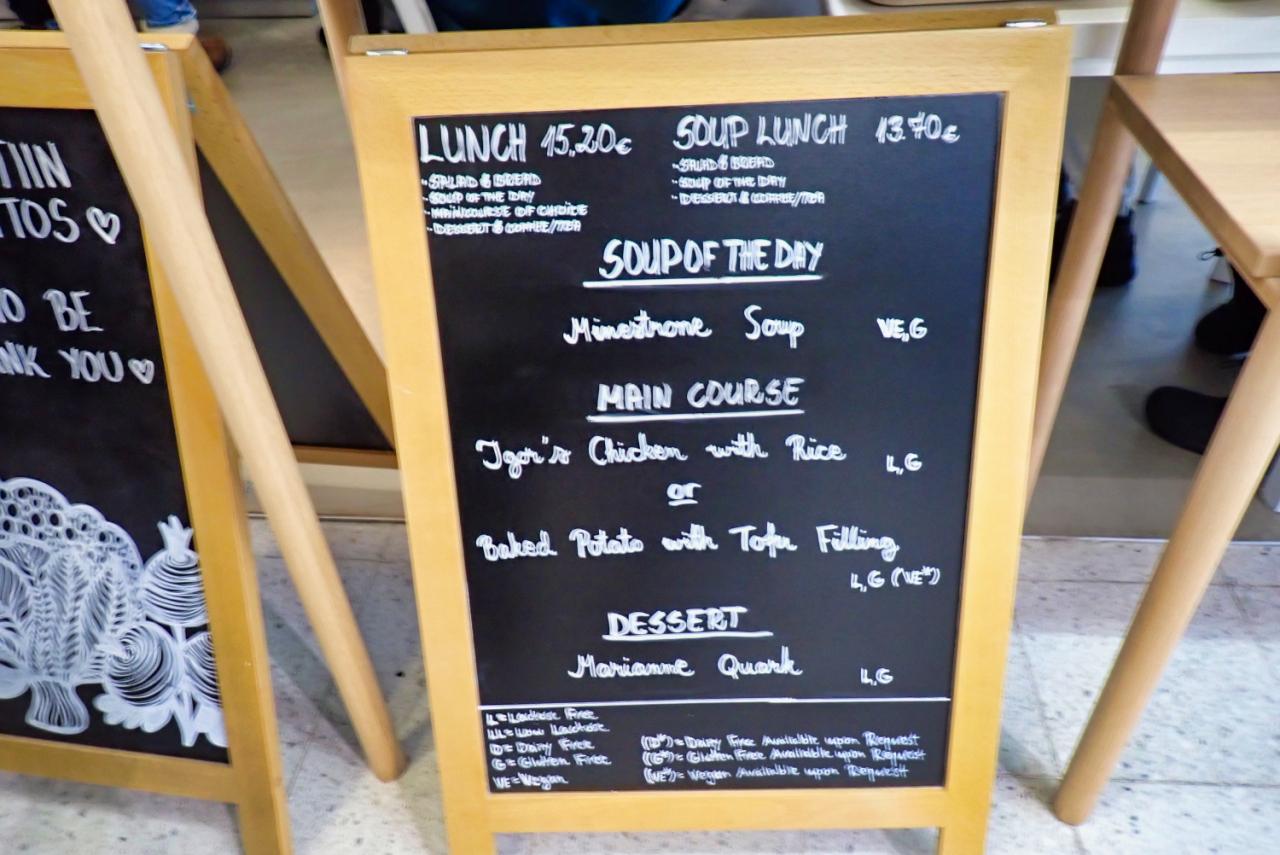 TIIN
TTOS ♡
TO BE
ANK YOU ♡
LUNCH 15,20€
- SALAD & BREAD
- SOUP OF THE DAY
- MAIN COURSE OF CHOICE
- DESSERT & COFFEE/TEA
SOUP LUNCH 13.70€
- SALAD & BREAD
- SOUP OF THE DAY
- DESSERT & COFFEE/TEA
SOUP OF THE DAY
Minestrone Soup VE,G
MAIN COURSE
Igor's Chicken with Rice L,G
or
Baked Potato with Tofu Filling
L,G (VE*)
DESSERT
Marianne Quark L,G
L = Lactose Free
LL = Low Lactose
D = Dairy Free
G = Gluten Free
VE = Vegan
(D*) = Dairy Free Available upon Request
(G*) = Gluten Free Available upon Request
(VE*) = Vegan Available upon Request